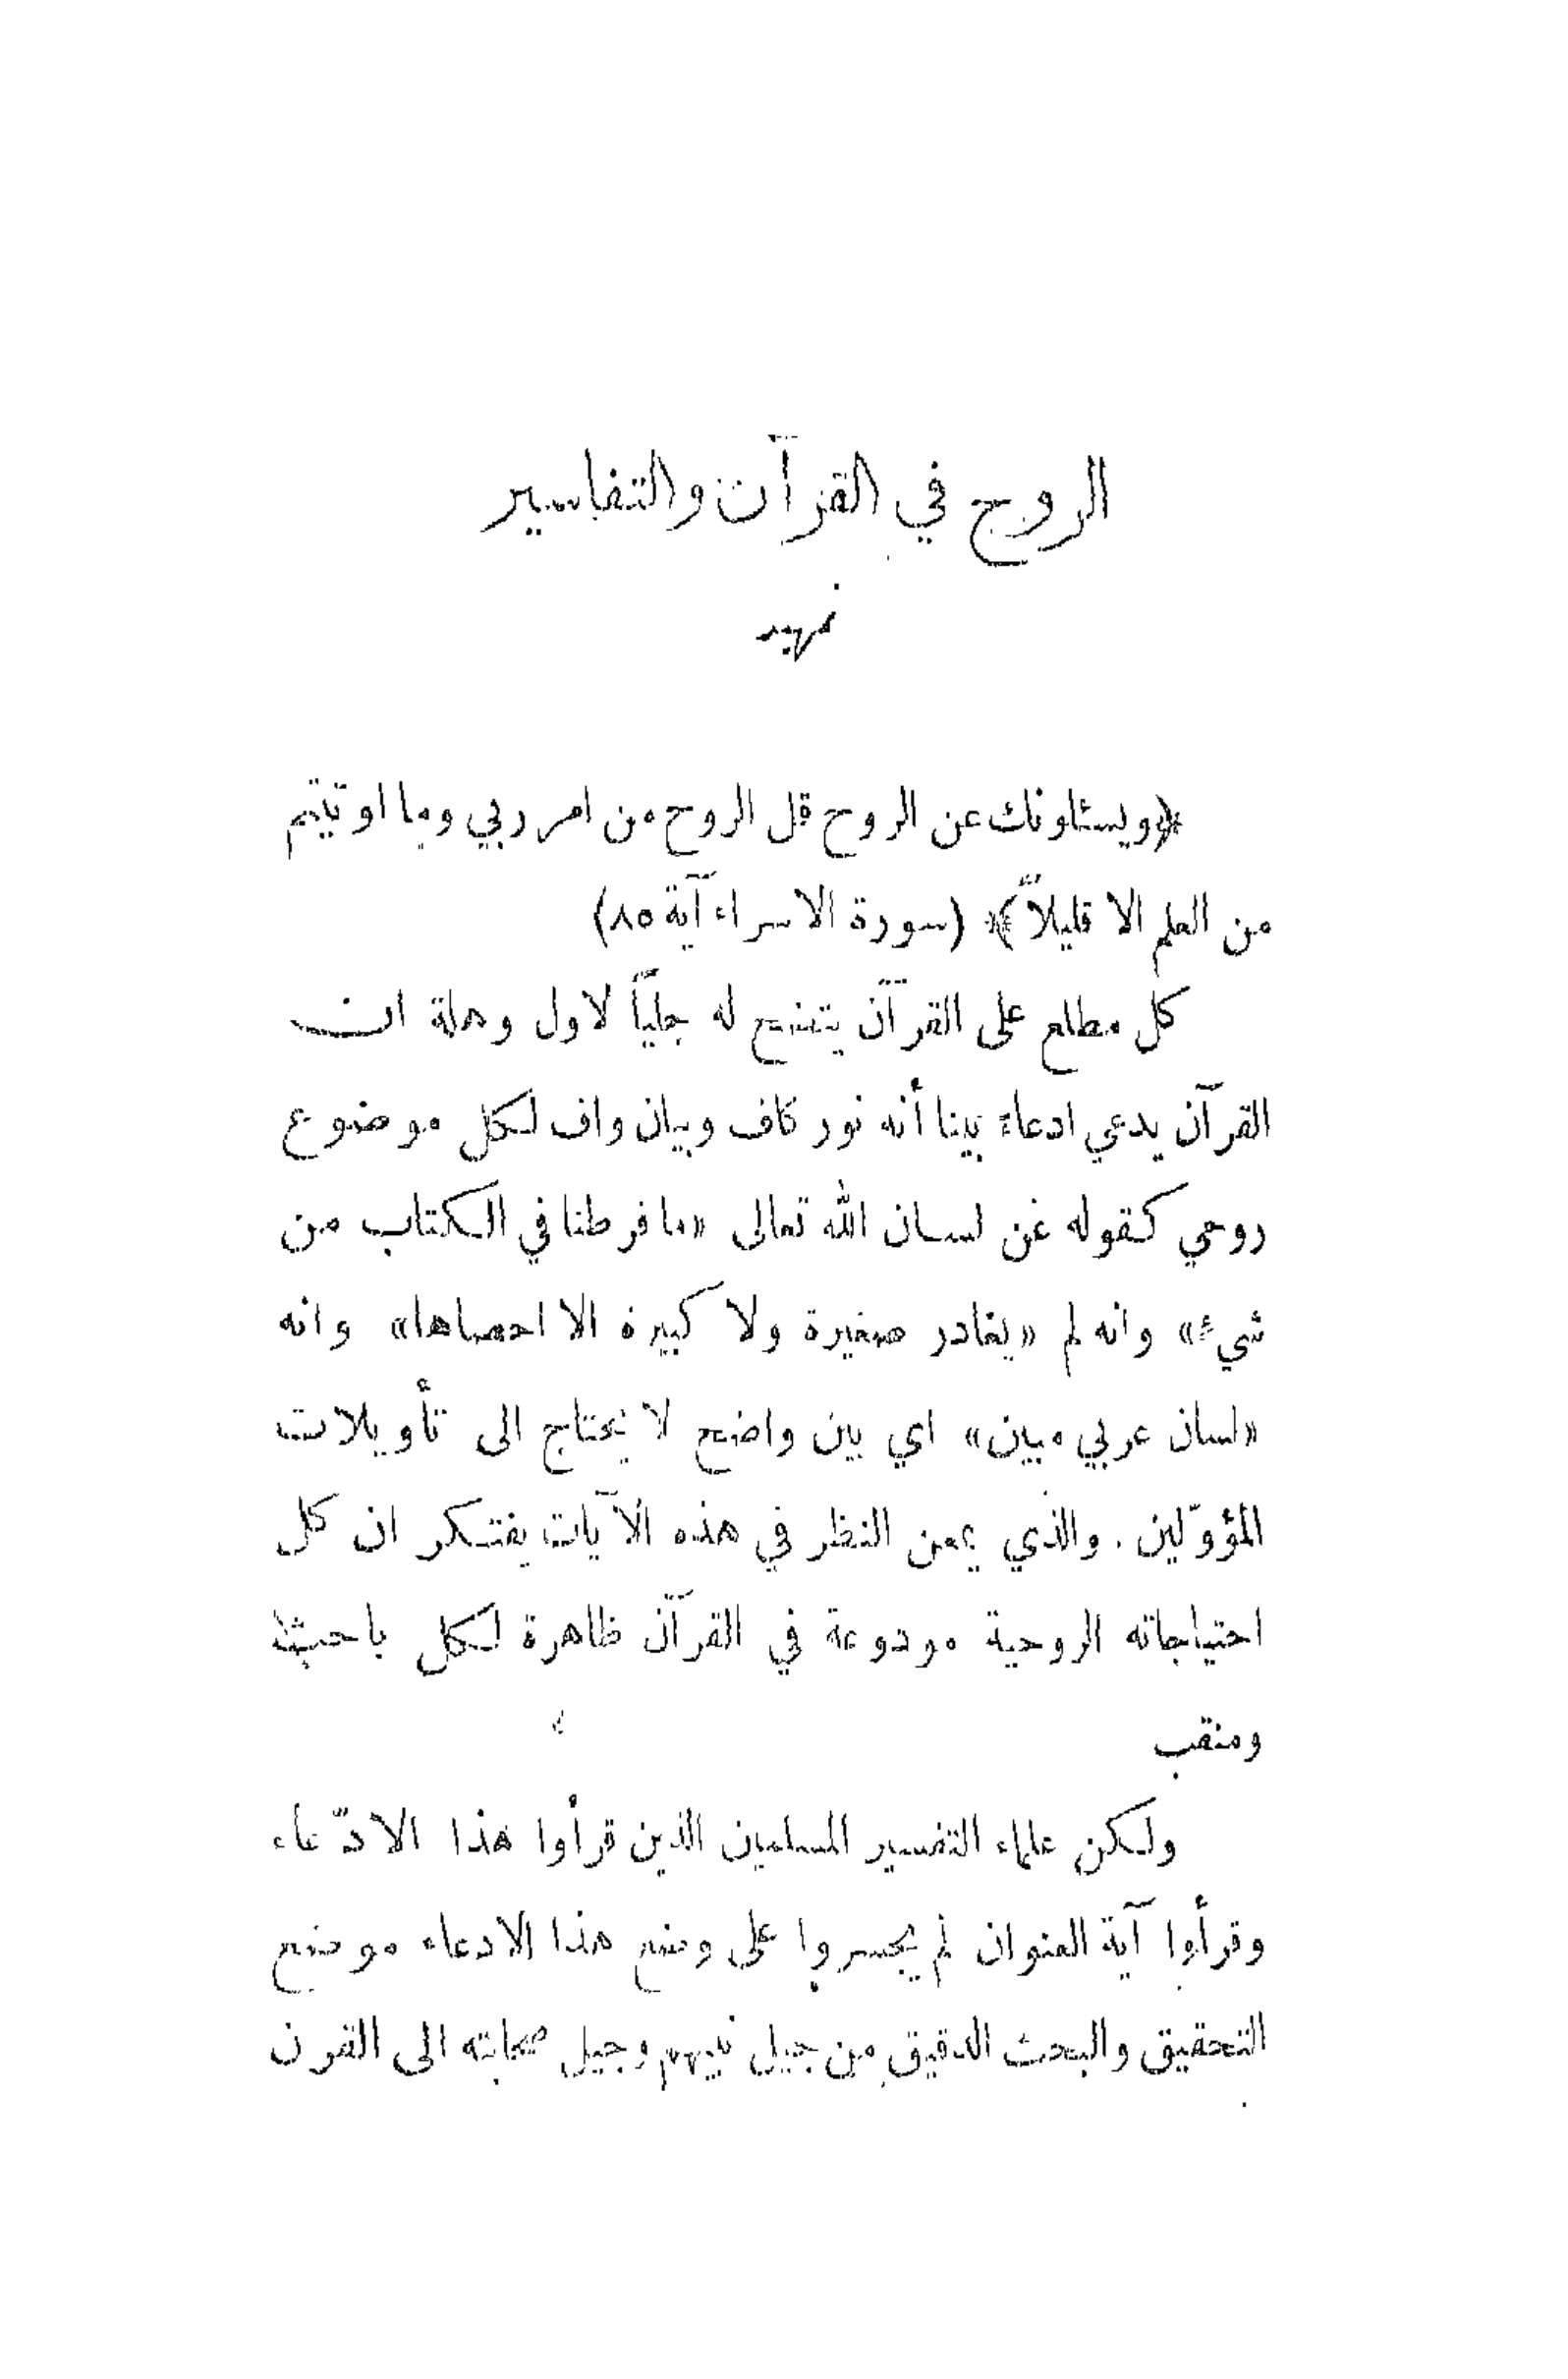 الروح في القرآن والتفاسير
تمهيد
﴿ويسئلونك عن الروح قل الروح من امر ربي وما اوتيتم
من العلم الا قليلاً﴾ (سورة الاسراء آية ٨٥)
كل مطلع على القرآن يتضح له جليّاً لاول وهلة ان
القرآن يدعي ادعاء بينا أنه نور كاف وبيان واف لكل موضوع
روحي كقوله عن لسان الله تعالى «ما فرطنا في الكتاب من
شيء» وانه لم «يغادر صغيرة ولا كبيرة الا احصاها» وانه
«لسان عربي مبين» اي بين واضح لا يحتاج الى تأويلات
المؤوّلين . والذي يمعن النظر في هذه الآيات يفتكر ان كل
احتياجاته الروحية مودوعة في القرآن ظاهرة لكل باحث
ومنقب
ولكن علماء التفسير المسلمين الذين قرأوا هذا الادّعاء
وقرأوا آية العنوان لم يجسروا على وضع هذا الادعاء موضع
التحقيق والبحث الدقيق من جيل نبيهم وجيل صحابته الى القرن